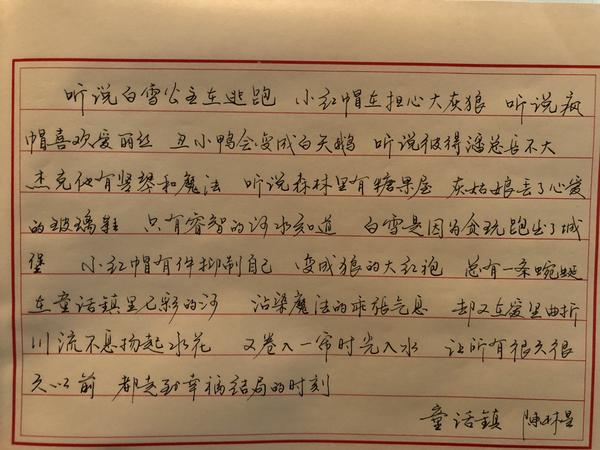 听说白雪公主在逃跑 小红帽在担心大灰狼 听说疯
帽喜欢爱丽丝 丑小鸭会变成白天鹅 听说彼得潘总长不大
杰克他有竖琴和魔法 听说森林里有糖果屋 灰姑娘丢了心爱
的玻璃鞋 只有睿智的河水知道 白雪是因为贪玩跑出了城
堡 小红帽有件抑制自己 变成狼的大红袍 总有一条蜿蜒
在童话镇里七彩的河 沾染魔法的乖张气息 却又在爱里曲折
川流不息扬起水花 又卷入一帘时光入水 让所有很久很
久以前 都走到幸福结局的时刻
童话镇 陈